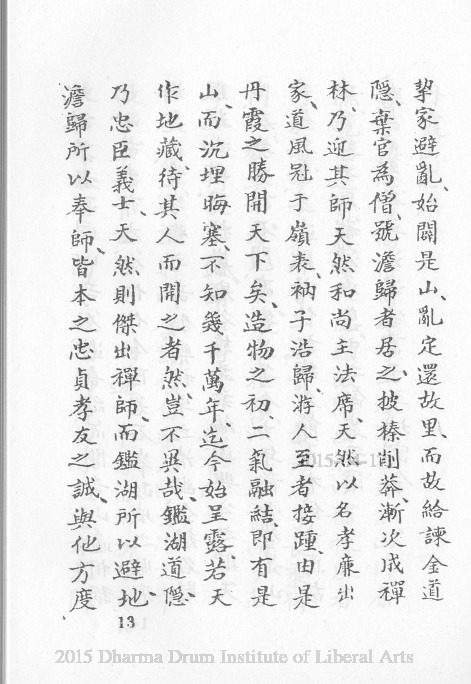 挈家避亂、始闢是山、亂定還故里、而故給諫金道
隱、棄官為僧、號澹歸者居之、披榛削莽、漸次成禪
林、乃迎其師天然和尚主法席、天然以名孝廉出
家、道風冠于嶺表、衲子浩歸、游人至者接踵、由是
丹霞之勝開天下矣、造物之初、二氣融結、即有是
山、而沉埋晦塞、不知幾千萬年、迄今始呈露、若天
作地藏、待其人而開之者然、豈不異哉、鑑湖道隱、
乃忠臣義士、天然則傑出禪師、而鑑湖所以避地、
澹歸所以奉師、皆本之忠貞孝友之誠、與化方度
13
2015 Dharma Drum Institute of Liberal Arts